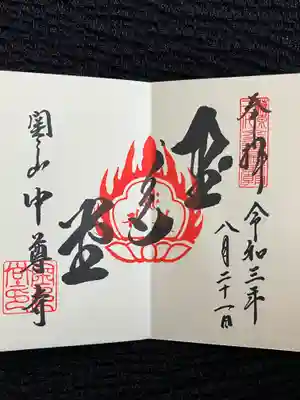 奉拝
令和三年
八月二十一日
金色堂
関山
中尊寺